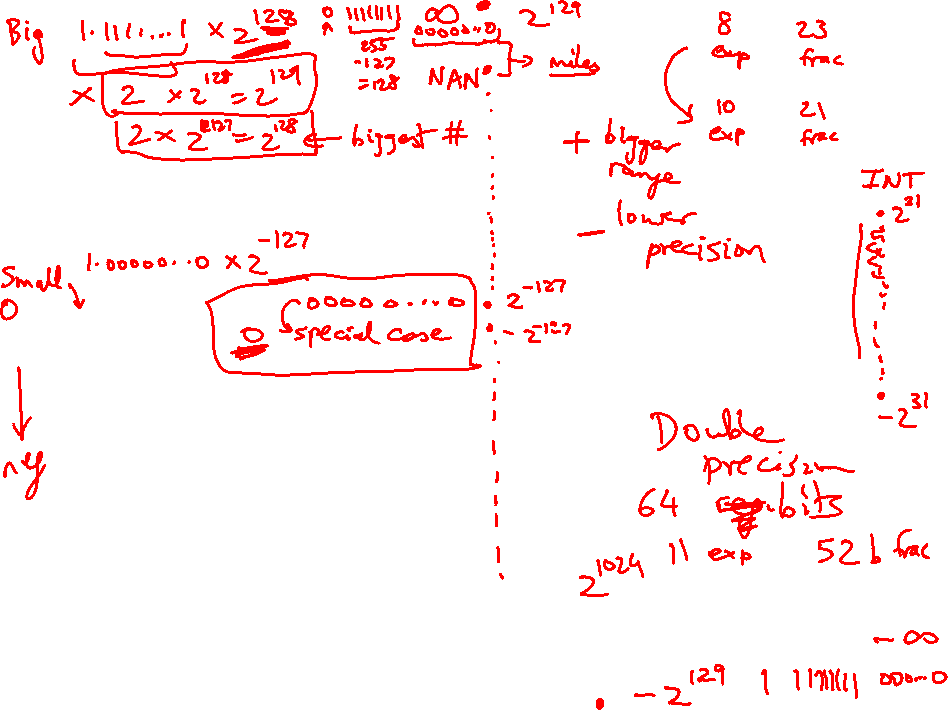 Big 1.111....1 × 2^128 0 11111111 ∞ 2^129
^ 255 0000000..0
-127
=128 NAN miles
× 2 × 2^128 = 2^129
2 × 2^127 = 2^128 ← biggest #
8 exp 23 frac
10 exp 21 frac
+ bigger range
- lower precision
INT
2^31
-2^31
1.00000..0 × 2^-127
Small
0
00000....0 2^-127
0 special case -2^-127
Double
precision
64 bits
2^1024 11 exp 52 b frac
-∞
. -2^129 1 11111111 000...0